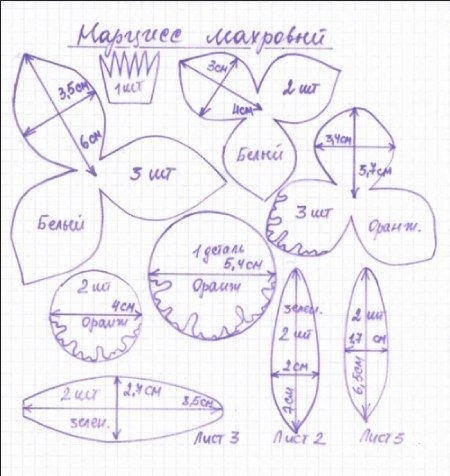 Нарцисс махровый
1 шт
3,5см
6 см
3 шт
Белый
3см
4см
2 шт
Белый
3,4см
3,7см
3 шт
Оранж.
1 деталь
5,4см
Оранж
2 шт
4см
Оранж
зелен.
2 шт
2 см
7см
2 шт
1,7 см
6,5см
2 шт
2,7см
8,5см
зелен.
Лист 3
Лист 2